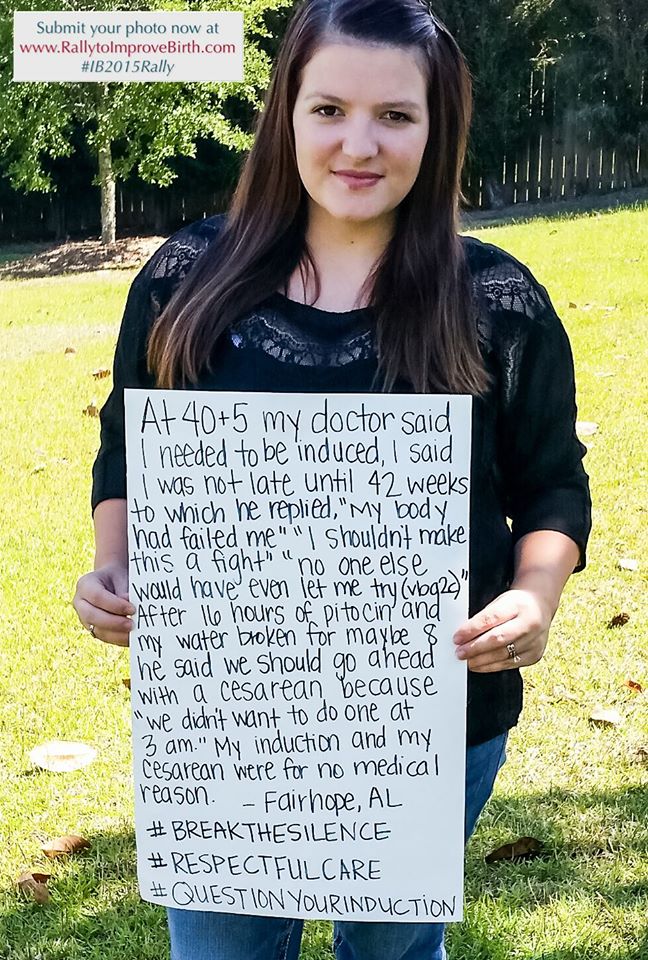 Submit your photo now at
www.RallytoImproveBirth.com
#IB2015Rally
At 40+5 my doctor said
I needed to be induced, I said
I was not late until 42 weeks
to which he replied, "My body
had failed me" "I shouldn't make
this a fight" "no one else
would have even let me try (vba2c)"
After 16 hours of pitocin and
my water broken for maybe 8
he said we should go ahead
with a cesarean because
"we didn't want to do one at
3 am." My induction and my
cesarean were for no medical
reason. – Fairhope, AL
#BREAKTHESILENCE
#RESPECTFULCARE
#QUESTIONYOURINDUCTION